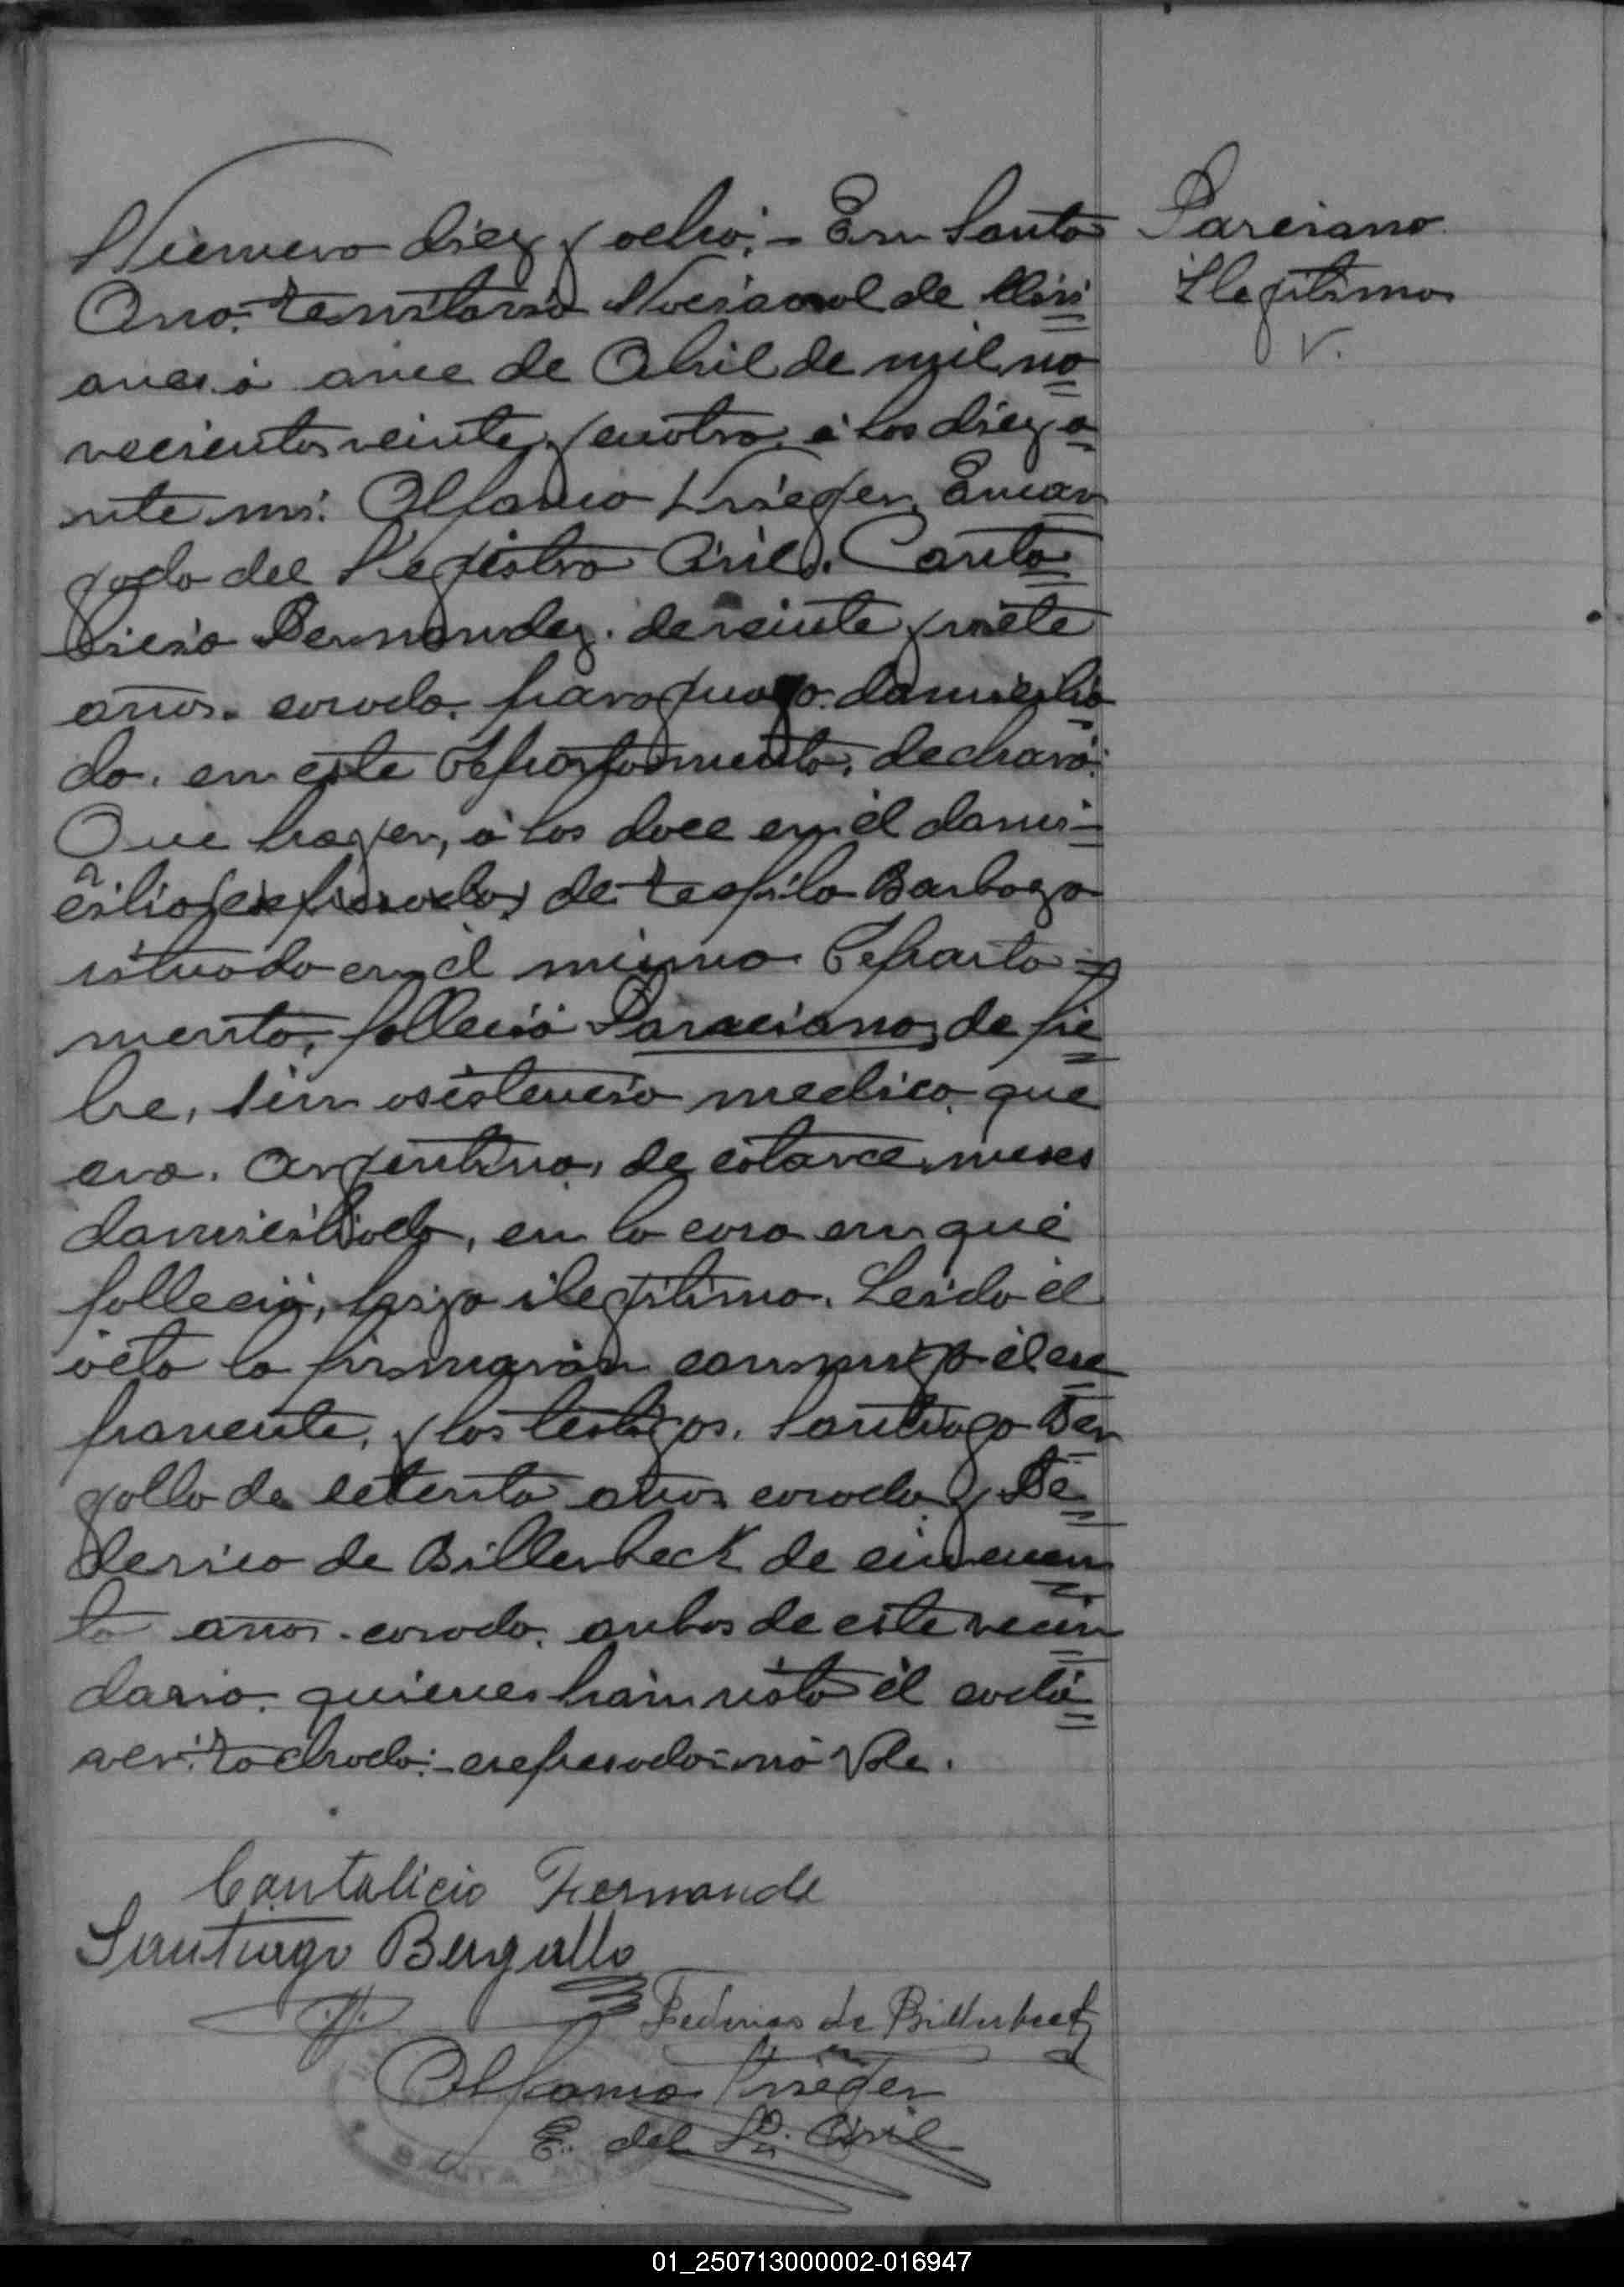 Número diez y ocho.- En Santa
Ana. territorio Nacional de Misi
ones á once de Abril de mil no
vecientos veinte y cuatro. á las diez a
nte mi. Alfonso Krieger. Encar
gado del Registro Civil. Canta
licio Fernandez. de veinte y siete
años. casado. paraguayo. domicilia
do. en este Departamento. declaró:
Que hayer, á las doce en él domi-
cilio (expresado) de Teofilo Barboza
situado en él mismo Departa=
mento, falleció Parciano, de fie
bre, sin asistencia medica. que
era. Argentino, de catorce meses
domiciliado, en la casa en que
falleció, hijo ilegítimo. Leido él
acta la firmarón conmigo él ex
ponente, y los testigos. Santiago Ber
gallo de setenta años casado y Fe
derico de Billerbeck de cincuen
ta años. casado. anbos de este vecin
dario. quienes hán visto él cadá
ver. Tachado:-expresado=nó Vale.
Cantalicio Fernande
Santiago Bergallo
Federico de Billerbeck
Alfonso Krieger
E. del R. Civil
SANTA ANA
Parciano
Ilegitimo
V.
01_250713000002-016947